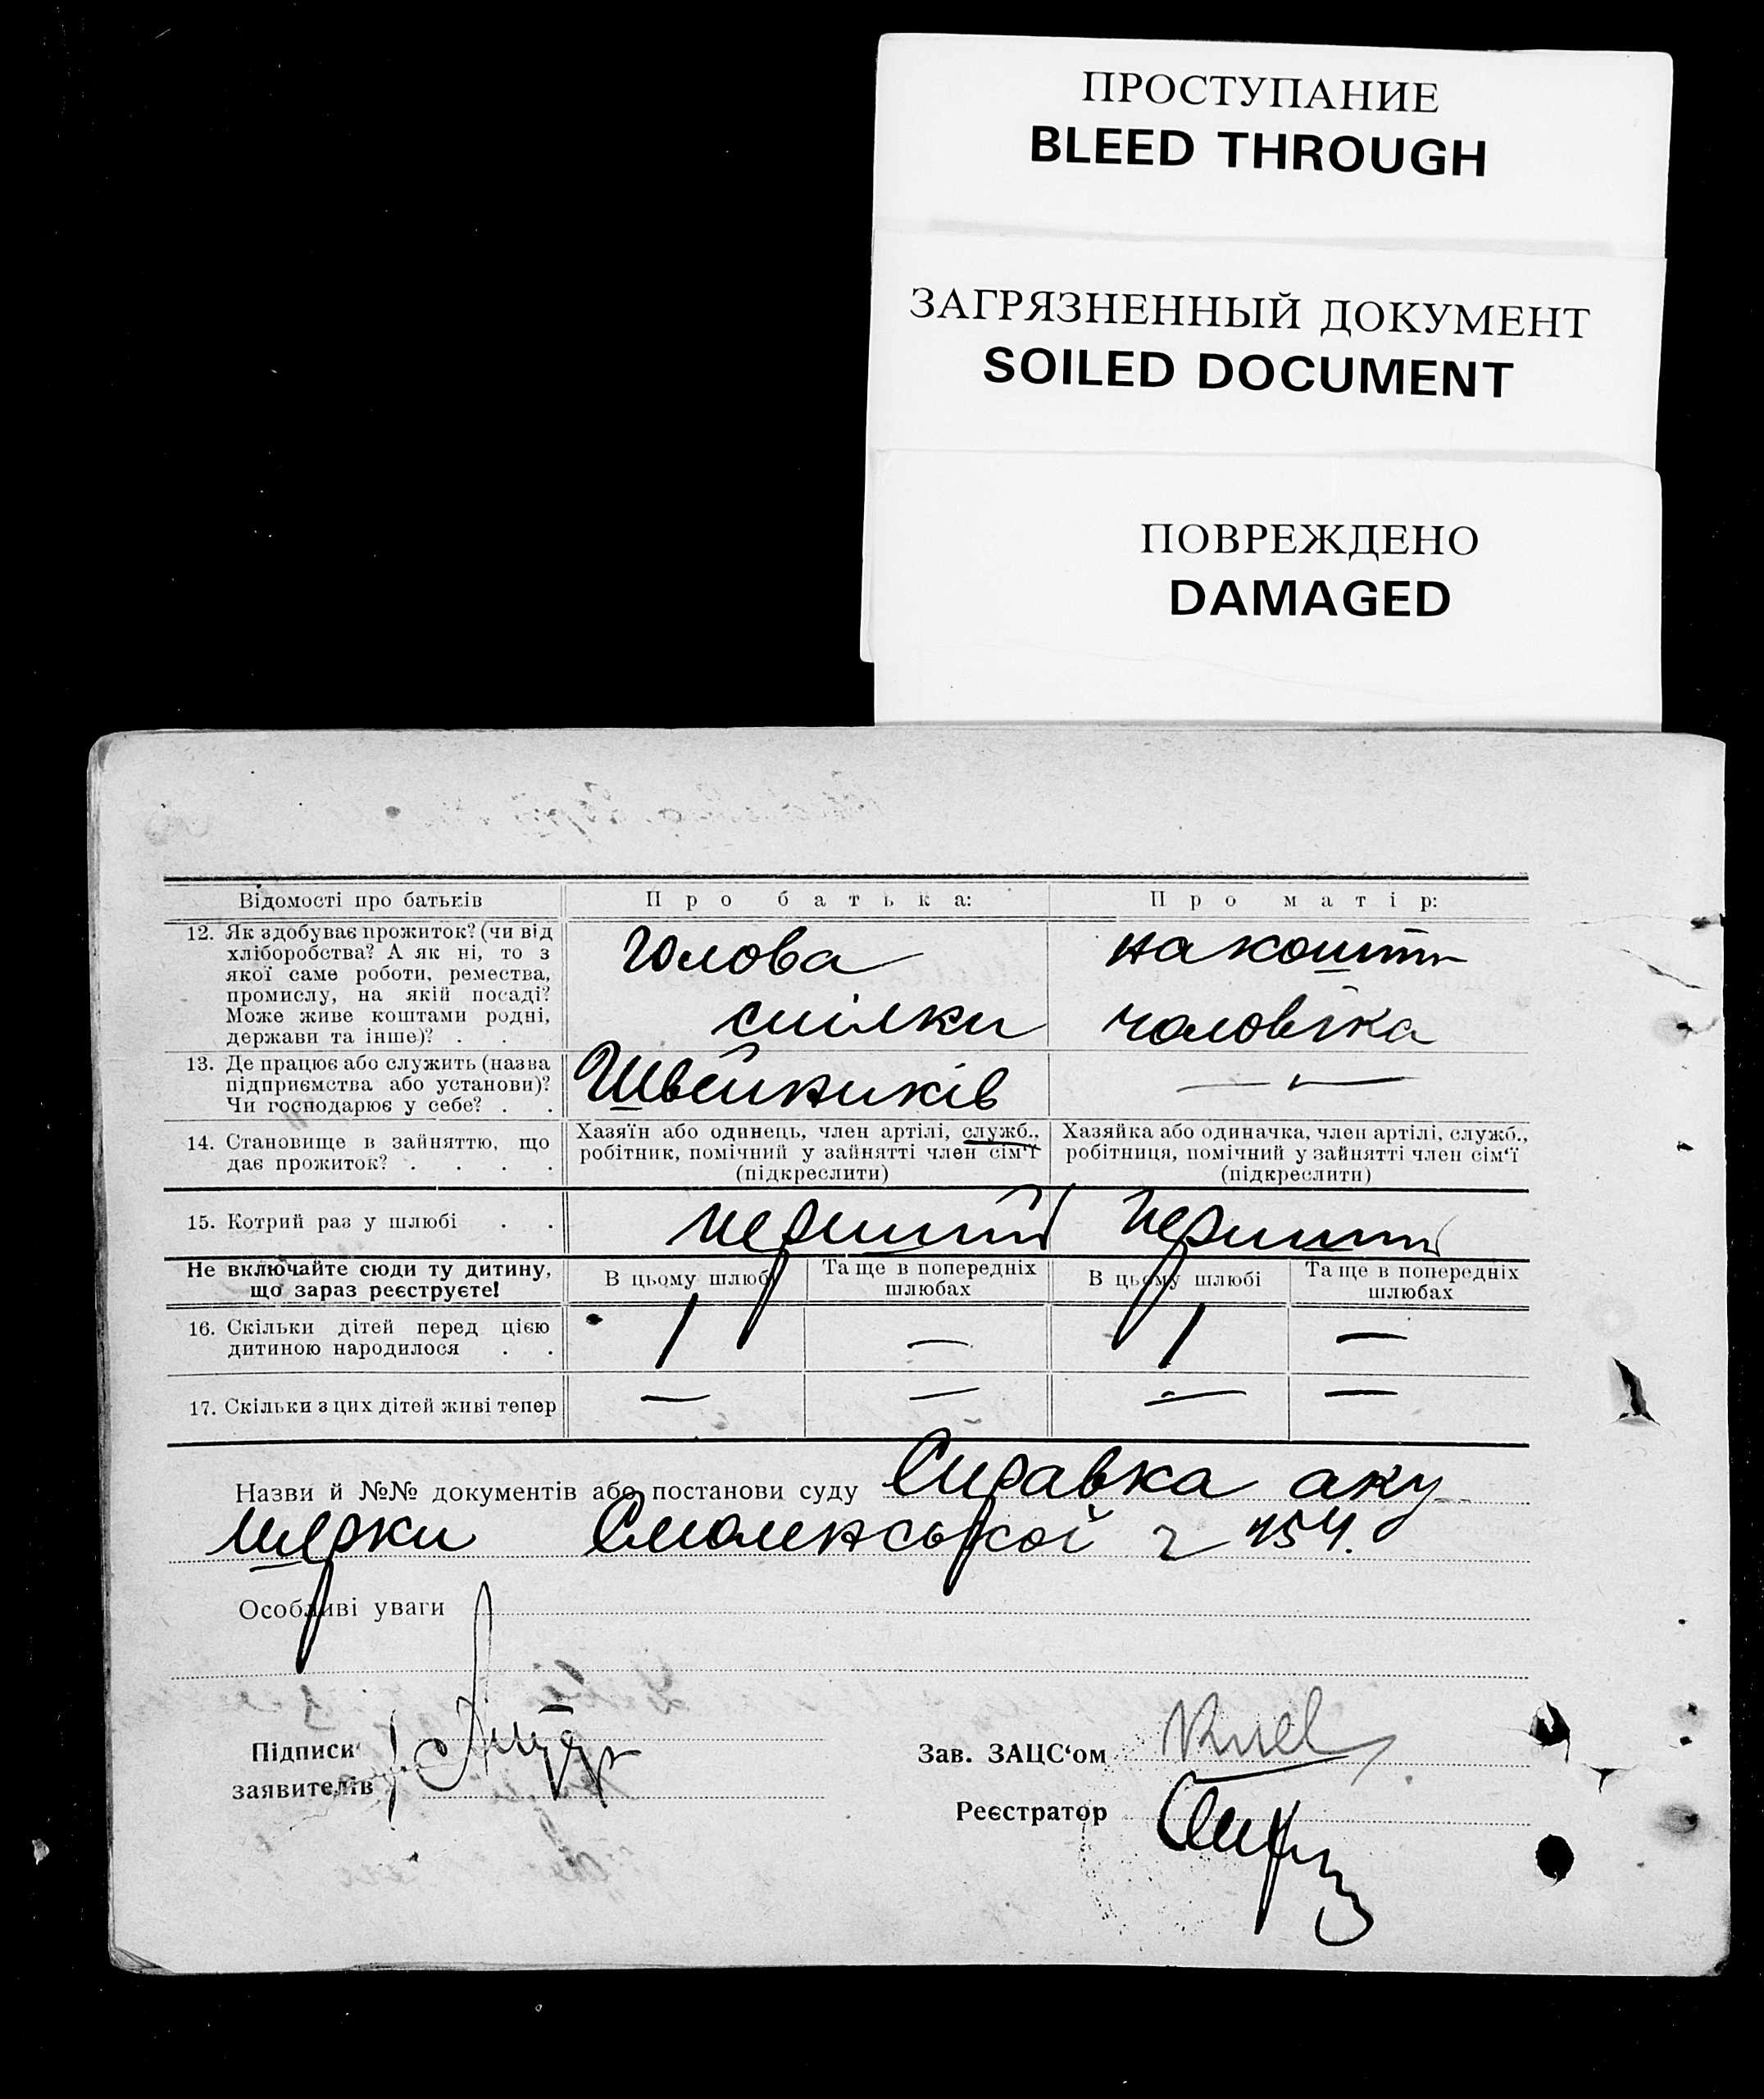 ПРОСТУПАНИЕ
BLEED THROUGH
ЗАГРЯЗНЕННЫЙ ДОКУМЕНТ
SOILED DOCUMENT
ПОВРЕЖДЕНО
DAMAGED
Відомості про батьків
Про батька:
Про матір:
12. Як здобуває прожиток? (чи від
хліборобства? А як ні, то з
якої саме роботи, ремества,
промислу, на якій посаді?
Може живе коштами родні,
держави та інше)? . .
Голова
спілки
на кошти
чоловіка
13. Де працює або служить (назва
підприємства або установи)?
Чи господарює у себе? . .
Швейників
— —
14. Становище в зайняттю, що
дає прожиток? . . . .
Хазяїн або одинець, член артілі, служб.,
робітник, помічний у зайнятті член сім'ї
(підкреслити)
Хазяйка або одиначка, член артілі, служб.,
робітниця, помічний у зайнятті член сім'ї
(підкреслити)
15. Котрий раз у шлюбі . .
перший
перший
Не включайте сюди ту дитину,
що зараз реєструєте!
В цьому шлюбі
Та ще в попередніх
шлюбах
В цьому шлюбі
Та ще в попередніх
шлюбах
16. Скільки дітей перед цією
дитиною народилося . .
1 — 1 —
17. Скільки з цих дітей живі тепер
— — — —
Назви й №№ документів або постанови суду Справка аку
шерки Смоленської г 154.
Особливі уваги
Підписи
заявителів
Зав. ЗАЦС'ом
Реєстратор